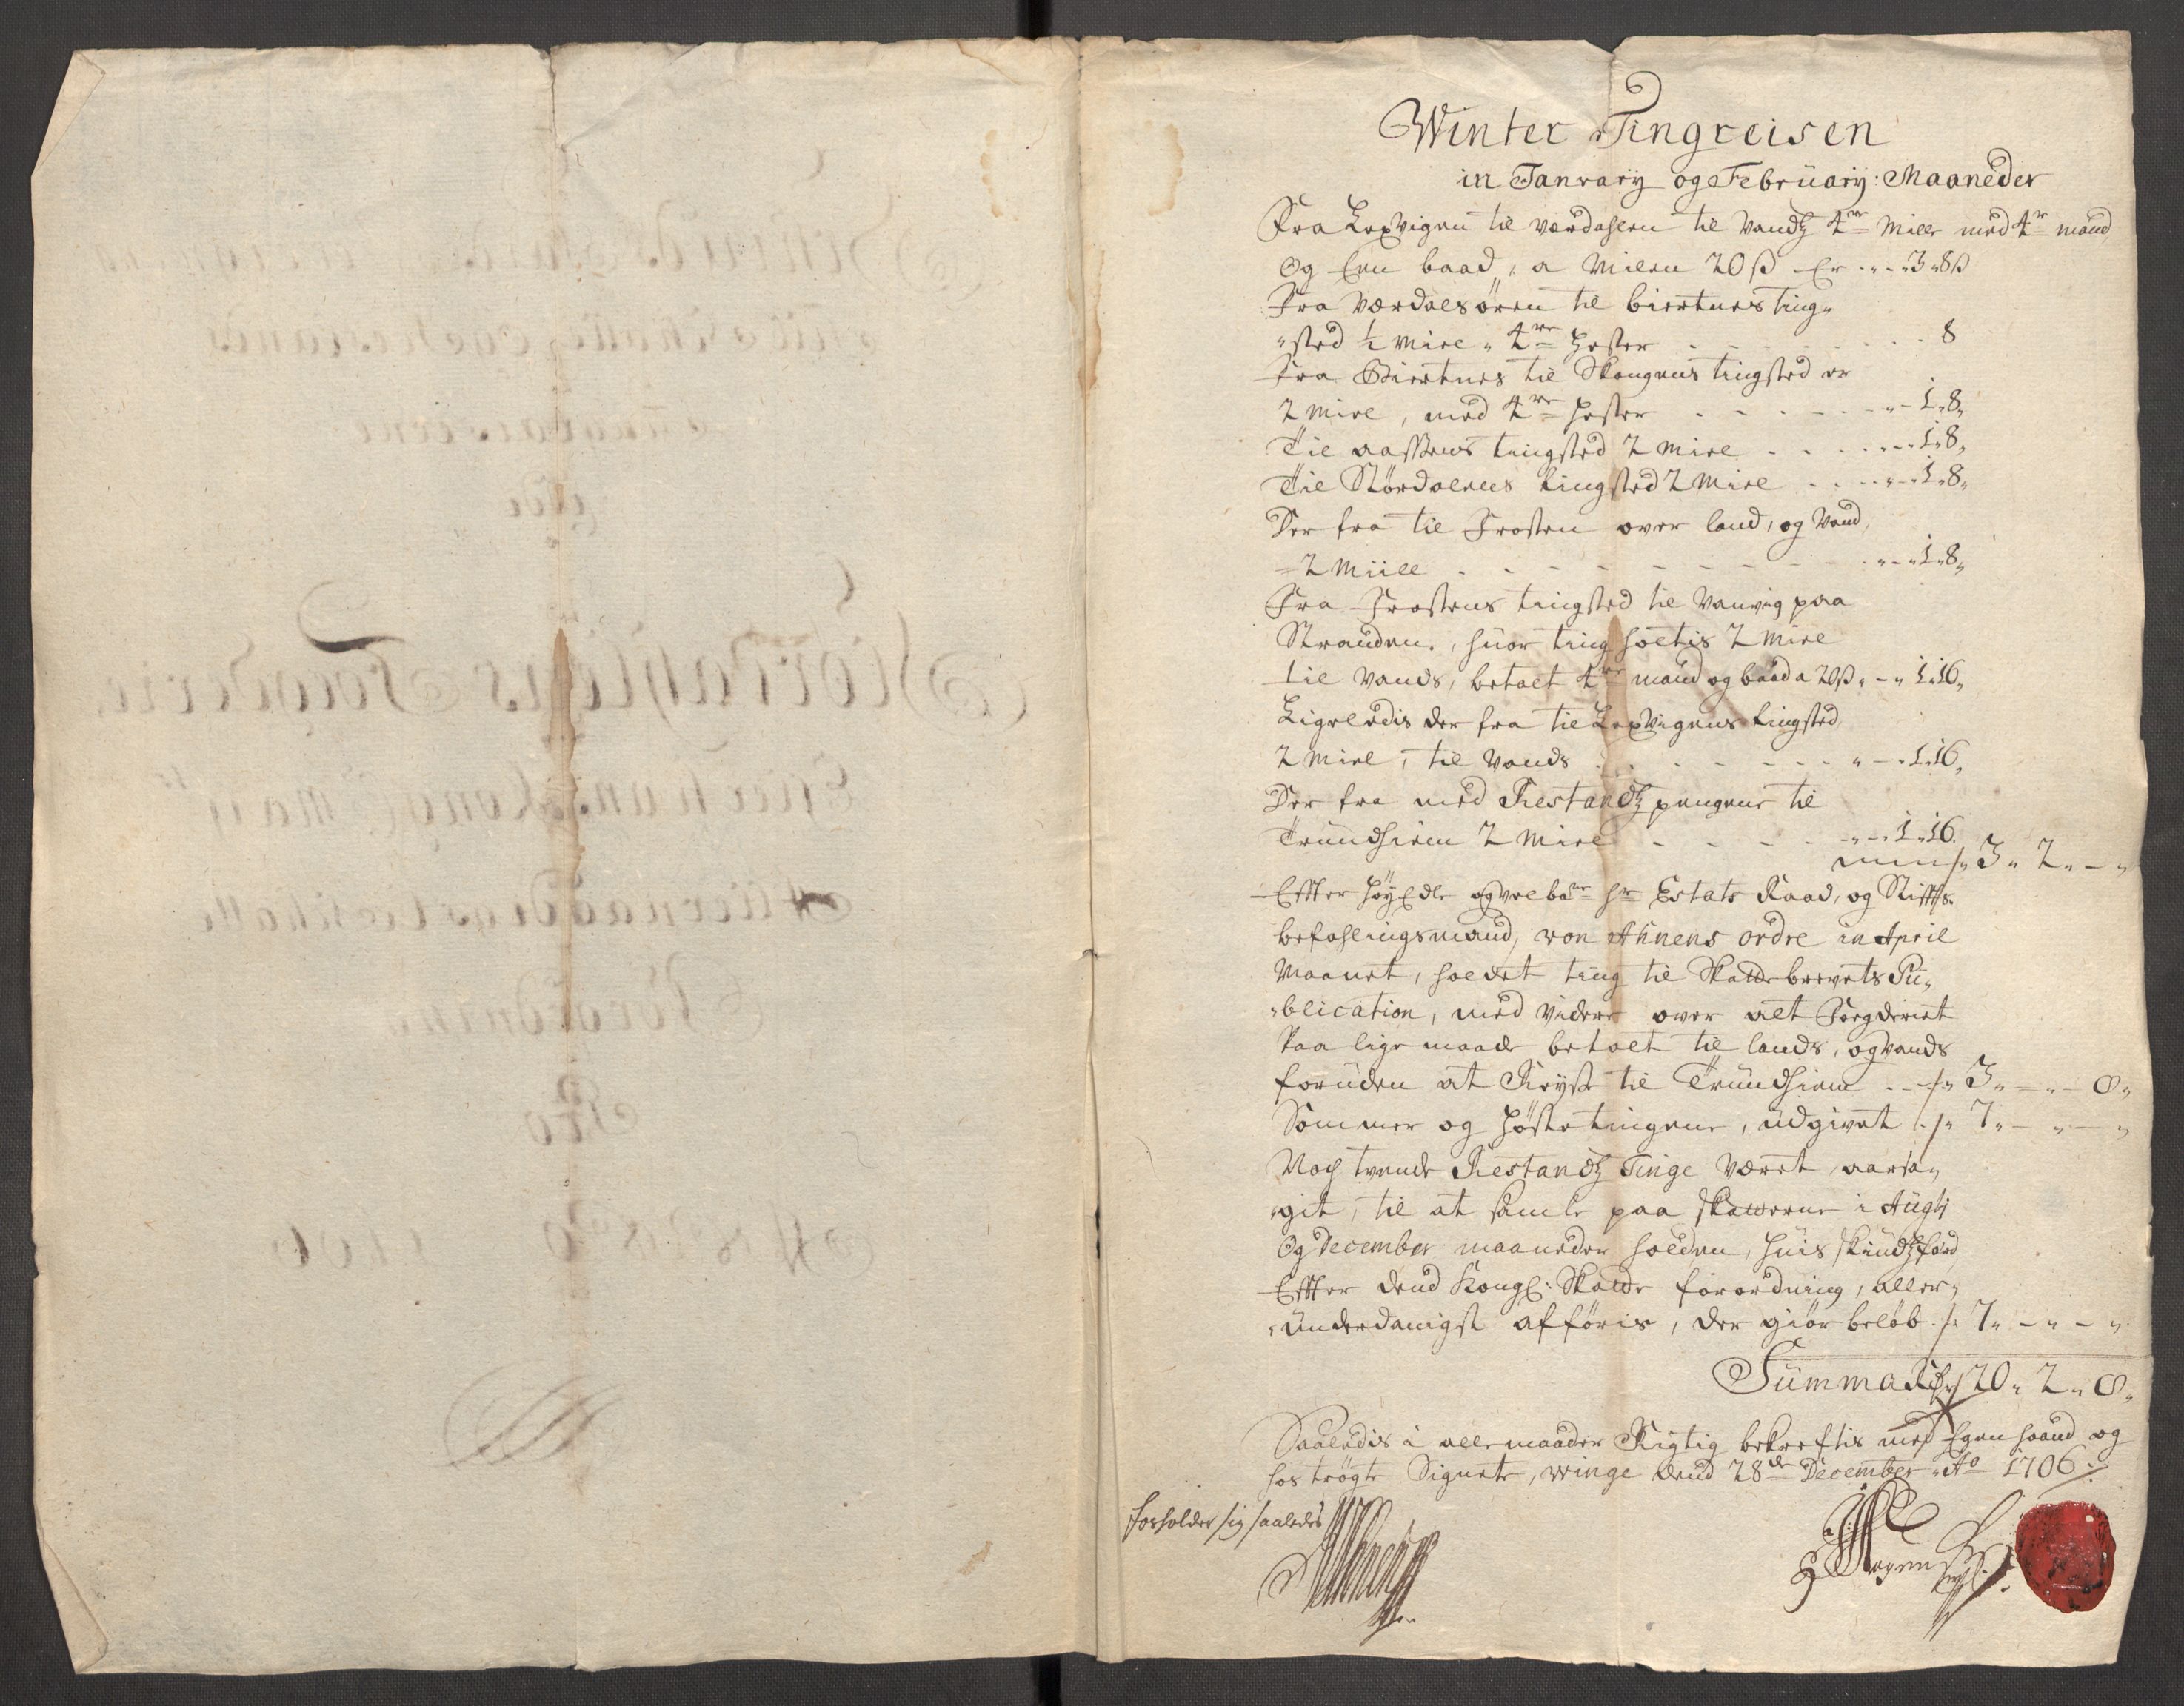 Winter Tingreisen
in Janvary og Februarij: Maaneder
Fra Lexvigen til værdahlen til vandz 4re Mille med 4re mand
Og Een baad, a Milen 20 ß Er - - - 3 " 8 ß
Fra Værdalsören til biertnes ting"
"sted ½ Miel " 4re Hester - - - 8
Fra Biertnes til Skongens tingsted er
2 Miel, med 4re Hester - - - 1 " 8 "
Til aassens tingsted 2 Miel - - - 1 " 8 "
Til Stördalens tingsted 2 Miel - - - 1 " 8 "
Der fra til Frosten over land, og Vand,
2 Miill - - - 1 " 8 "
Fra Frostens tingsted til Vanvig paa
Stranden, huor ting holtis 2 Miel
til Vands, betalt 4re mand og baad a 20 ß " - " 1 " 16 "
Ligeledis der fra til Lexvigens tingsted
2 Miel, til Vands - - - 1 " 16 "
Der fra med Restandz pengene til
Trundhiem 2 Miel - - - 1 " 16.
3 " 2 " - "
Effter HöyEdle og velbaarne Hr Estats Raad, og Stiffts
befahlingsmand, von Ahnens ordre in April
Maanet, holdet ting til Skattebrevets Pu"
"blication, med videre over alt Fogderiet
Paa lige maade betalt til lands, og vands
foruden at Reyse til Trundhiem - - 3 " - " 8 "
Sommer og Höste tingene, udgivet 7 " - " - "
Noch tvende Restandz Tinge været aarsa"
"git, til at samle paa skatterne i Augtj
Og December maaneder holden, huis skiudsferd
Effter dend Kongl: Skatte forordning, aller"
"underdanigst afföris, der giör beløb 7 " - " - "
Summa Rdr 20 " 2 " 8 "
Saaledis i alle maader Rigtig bekreftis med Egen haand og
hoströgte Signete, winge dend 28de December Ao 1706 ./.
forholder sig saaledes
Ahnen